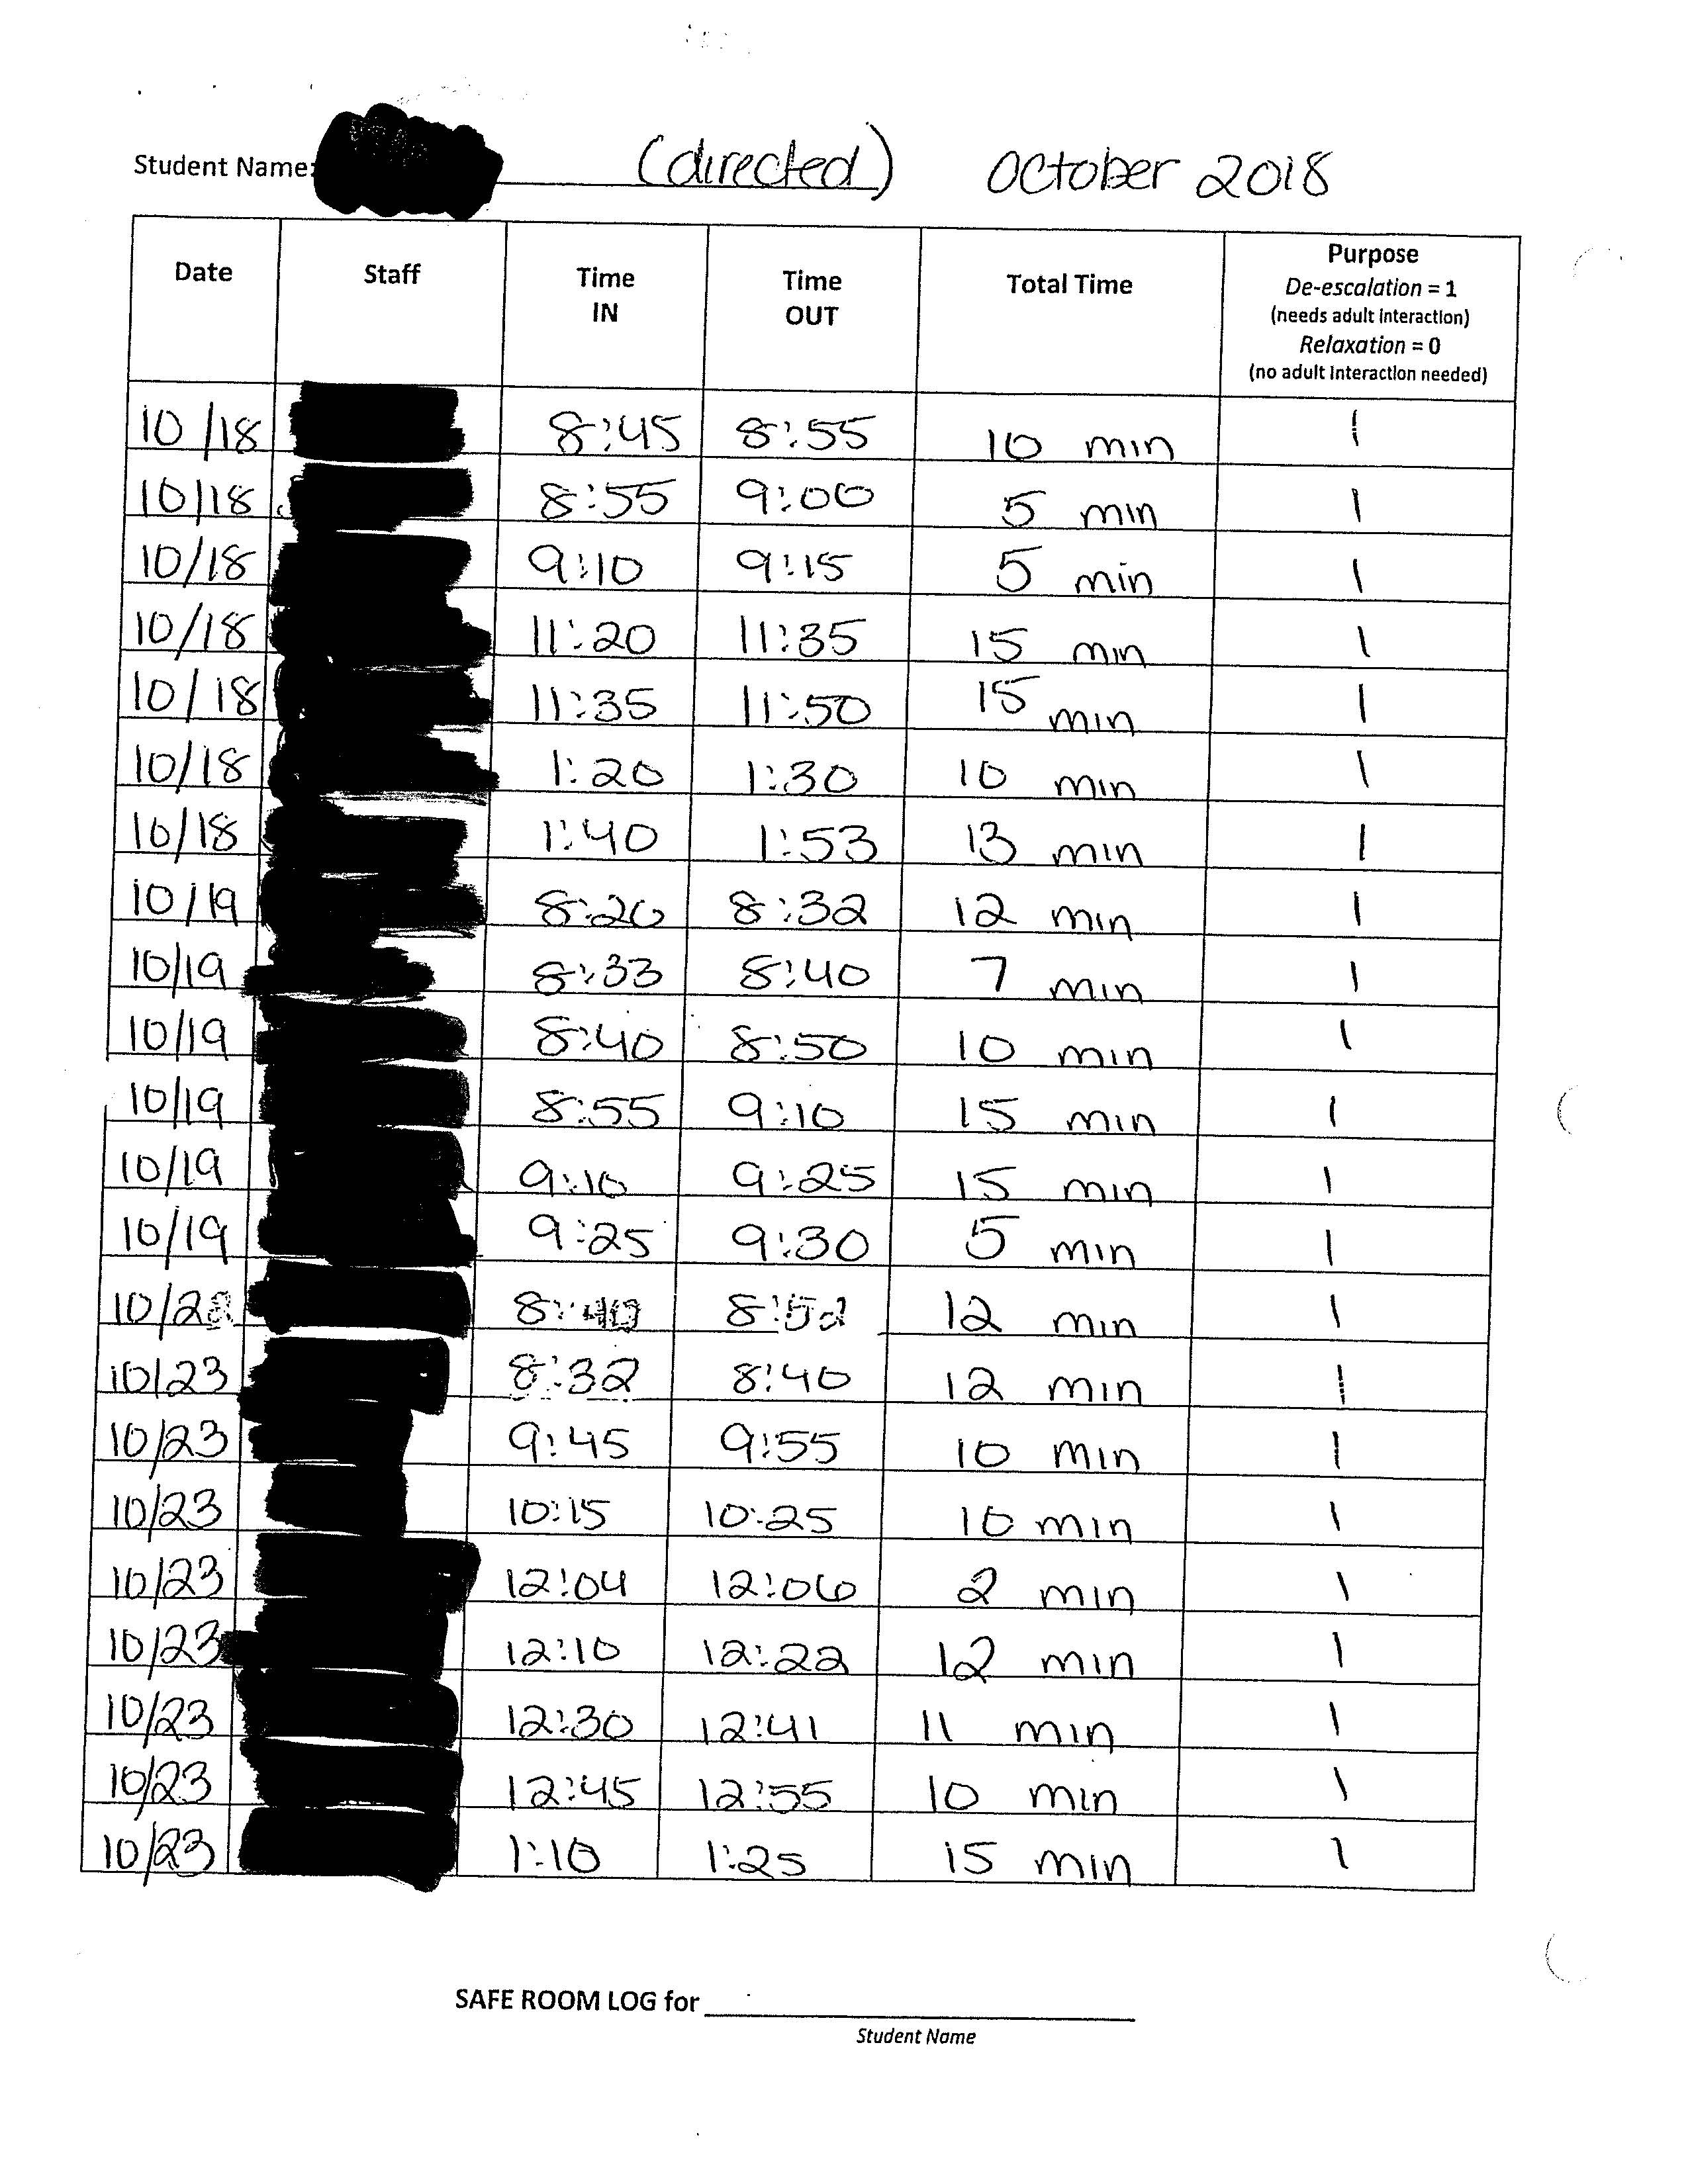 Student Name: (directed) October 2018
Date Staff Time IN Time OUT Total Time Purpose
De-escalation = 1
(needs adult interaction)
Relaxation = 0
(no adult interaction needed)
10/18 8:45 8:55 10 min 1
10/18 8:55 9:00 5 min 1
10/18 9:10 9:15 5 min 1
10/18 11:20 11:35 15 min 1
10/18 11:35 11:50 15 min 1
10/18 1:20 1:30 10 min 1
10/18 1:40 1:53 13 min 1
10/19 8:20 8:32 12 min 1
10/19 8:33 8:40 7 min 1
10/19 8:40 8:50 10 min 1
10/19 8:55 9:10 15 min 1
10/19 9:10 9:25 15 min 1
10/19 9:25 9:30 5 min 1
8:40 8:52 12 min 1
10/23 8:32 8:40 12 min 1
10/23 9:45 9:55 10 min 1
10/23 10:15 10:25 10 min 1
10/23 12:04 12:06 2 min 1
10/23 12:10 12:22 12 min 1
10/23 12:30 12:41 11 min 1
10/23 12:45 12:55 10 min 1
10/23 1:10 1:25 15 min 1
SAFE ROOM LOG for
Student Name